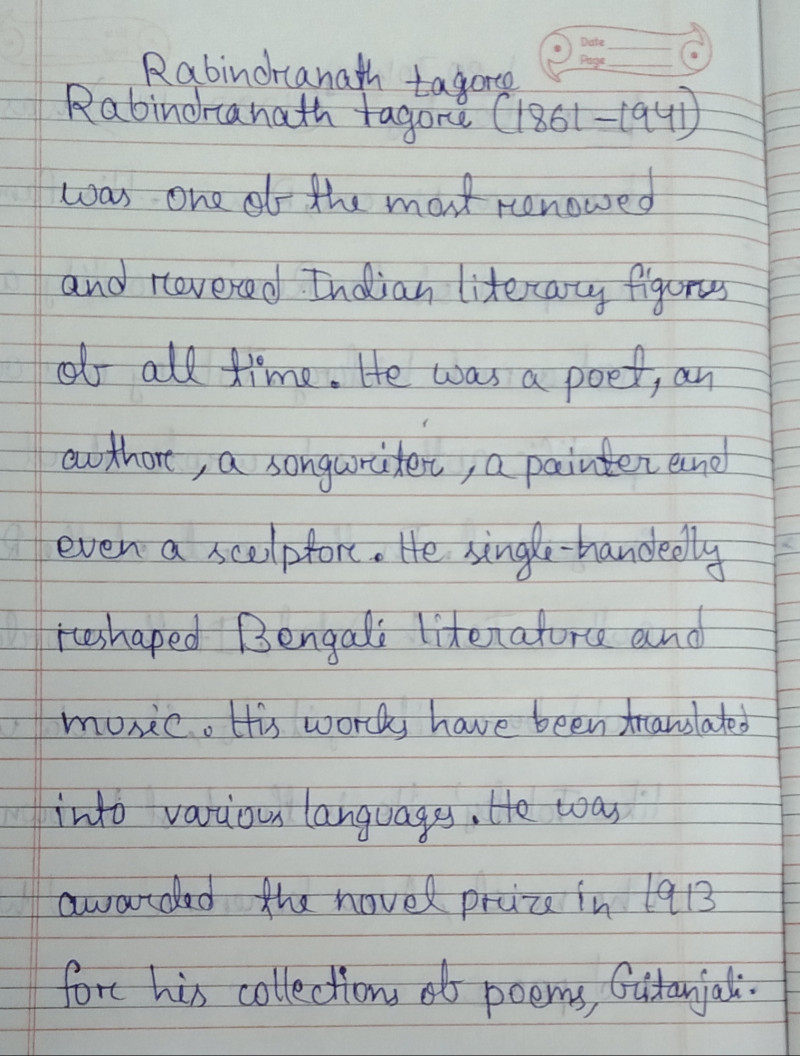 Date
Page
Rabindranath tagore
Rabindranath tagore (1861-1941)
was one of the most renowed
and revered Indian literary figures
of all time. He was a poet, an
author, a songwriter, a painter and
even a scelptor. He single-handedly
reshaped Bengali literature and
music. His works have been translated
into various languages. He was
awarded the novel prize in 1913
for his collections of poems, Gitanjali.